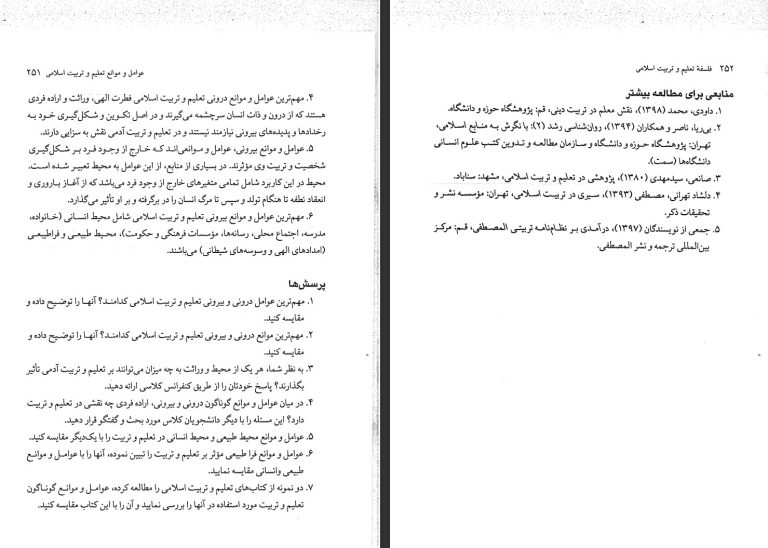 عوامل و موانع تعلیم و تربیت اسلامی ۲۵۱
۴. مهم‌ترین عوامل و موانع درونی تعلیم و تربیت اسلامی فطرت الهی، وراثت و اراده فردی
هستند که از درون و ذات انسان سرچشمه می‌گیرند و در اصل تکوین و شکل‌گیری خود به
رخدادها و پدیده‌های بیرونی نیازمند نیستند و در تعلیم و تربیت آدمی نقش به سزایی دارند.
۵. عوامل و موانع بیرونی، عوامل و موانعی‌اند که خارج از وجود فرد بر شکل‌گیری
شخصیت و تربیت وی مؤثرند. در بسیاری از منابع، از این عوامل به محیط تعبیر شده است.
محیط در این کاربرد شامل تمامی متغیرهای خارج از وجود فرد می‌باشد که از آغاز باروری و
انعقاد نطفه تا هنگام تولد و سپس تا مرگ انسان را در برگرفته و بر او تأثیر می‌گذارد.
۶. مهم‌ترین عوامل و موانع بیرونی تعلیم و تربیت اسلامی شامل محیط انسانی (خانواده،
مدرسه، اجتماع محلی، رسانه‌ها، مؤسسات فرهنگی و حکومت)، محیط طبیعی و فراطبیعی
(امدادهای الهی و وسوسه‌های شیطانی) می‌باشند.
پرسش‌ها
۱. مهم‌ترین عوامل درونی و بیرونی تعلیم و تربیت اسلامی کدامند؟ آنها را توضیح داده و
مقایسه کنید.
۲. مهم‌ترین موانع درونی و بیرونی تعلیم و تربیت اسلامی کدامند؟ آنها را توضیح داده و
مقایسه کنید.
۳. به نظر شما، هر یک از محیط و وراثت به چه میزان می‌توانند بر تعلیم و تربیت آدمی تأثیر
بگذارند؟ پاسخ خودتان را از طریق کنفرانس کلاسی ارائه دهید.
۴. در میان عوامل و موانع گوناگون درونی و بیرونی، اراده فردی چه نقشی در تعلیم و تربیت
دارد؟ این مسئله را با دیگر دانشجویان کلاس مورد بحث و گفتگو قرار دهید.
۵. عوامل و موانع محیط طبیعی و محیط انسانی در تعلیم و تربیت را با یک‌دیگر مقایسه کنید.
۶. عوامل و موانع فرا طبیعی مؤثر بر تعلیم و تربیت را تبیین نموده، آنها را با عوامل و موانع
طبیعی وانسانی مقایسه نمایید.
۷. دو نمونه از کتاب‌های تعلیم و تربیت اسلامی را مطالعه کرده، عوامل و موانع گوناگون
تعلیم و تربیت مورد استفاده در آنها را بررسی نمایید و آن را با این کتاب مقایسه کنید.
۲۵۲ فلسفهٔ تعلیم و تربیت اسلامی
منابعی برای مطالعه بیشتر
۱. داودی، محمد (۱۳۹۸)، نقش معلم در تربیت دینی، قم: پژوهشگاه حوزه و دانشگاه.
۲. بی‌ریا، ناصر و همکاران (۱۳۹۴)، روان‌شناسی رشد (۲): با نگرش به منابع اسلامی،
تهران: پژوهشگاه حوزه و دانشگاه و سازمان مطالعه و تدوین کتب علوم انسانی
دانشگاه‌ها (سمت).
۳. صانعی، سیدمهدی (۱۳۸۰)، پژوهشی در تعلیم و تربیت اسلامی، مشهد: سناباد.
۴. دلشاد تهرانی، مصطفی (۱۳۹۳)، سیری در تربیت اسلامی، تهران: مؤسسه نشر و
تحقیقات ذکر.
۵. جمعی از نویسندگان (۱۳۹۷)، درآمدی بر نظام‌نامه تربیتی المصطفی، قم: مرکز
بین‌المللی ترجمه و نشر المصطفی.